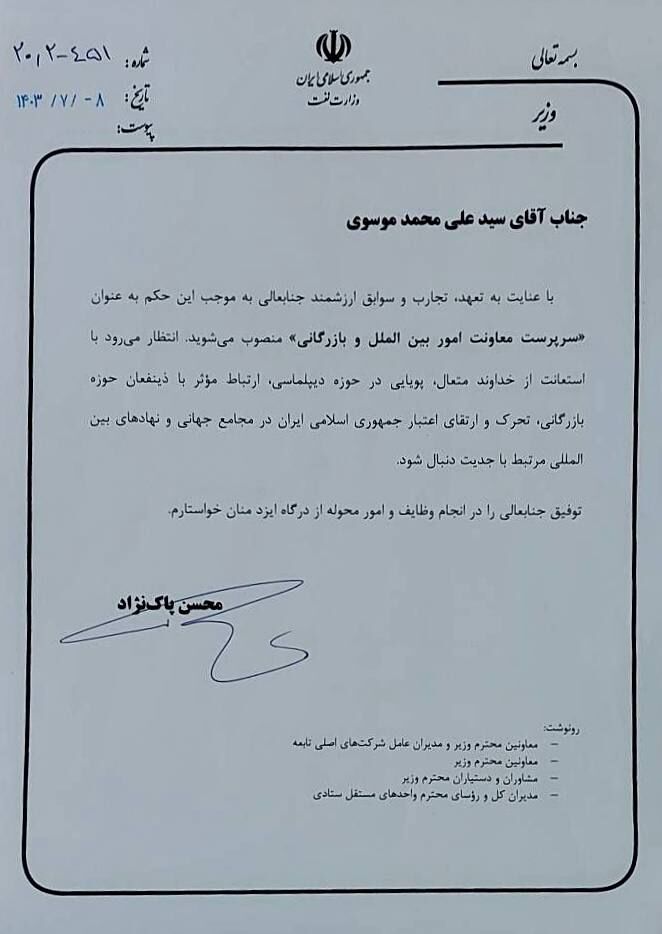 بسمه تعالی
جمهوری اسلامی ایران
وزارت نفت
وزیر
شماره: ۲۰٫۲-۴۵۱
تاریخ: ۱۴۰۳ /۷ /- ۸
پیوست:
جناب آقای سید علی محمد موسوی
با عنایت به تعهد، تجارب و سوابق ارزشمند جنابعالی به موجب این حکم به عنوان
«سرپرست معاونت امور بین الملل و بازرگانی» منصوب می‌شوید. انتظار می‌رود با
استعانت از خداوند متعال، پویایی در حوزه دیپلماسی، ارتباط مؤثر با ذینفعان حوزه
بازرگانی، تحرک و ارتقای اعتبار جمهوری اسلامی ایران در مجامع جهانی و نهادهای بین
المللی مرتبط با جدیت دنبال شود.
توفیق جنابعالی را در انجام وظایف و امور محوله از درگاه ایزد منان خواستارم.
محسن پاک‌نژاد
رونوشت:
– معاونین محترم وزیر و مدیران عامل شرکت‌های اصلی تابعه
– معاونین محترم وزیر
– مشاوران و دستیاران محترم وزیر
– مدیران کل و رؤسای محترم واحدهای مستقل ستادی